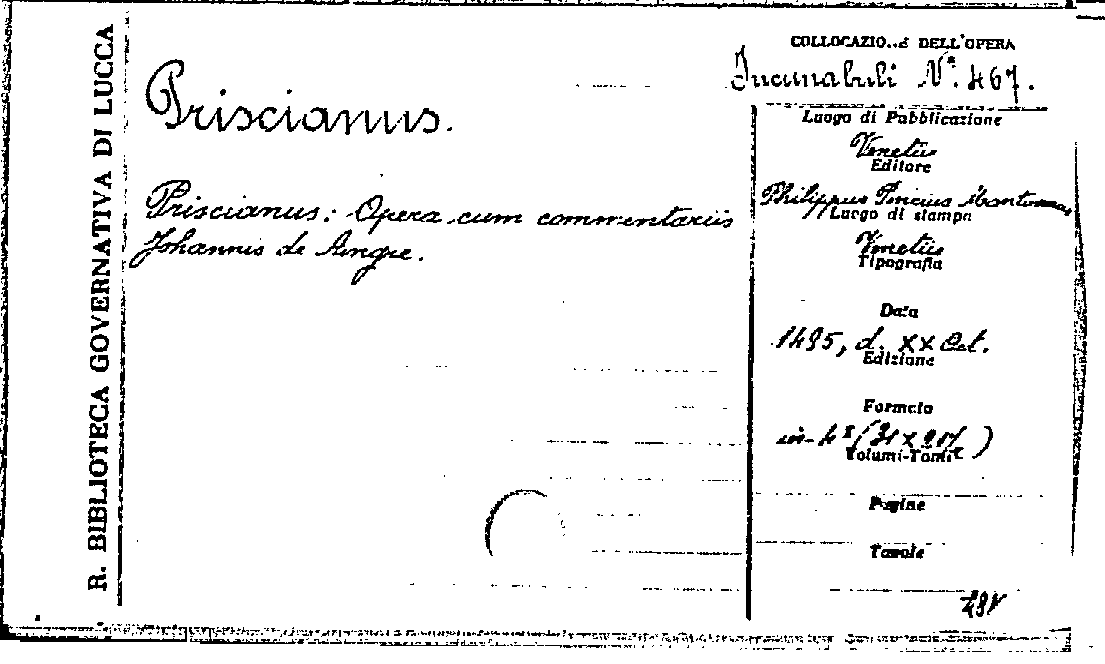 R. BIBLIOTECA GOVERNATIVA DI LUCCA
Priscianus.
Priscianus: Opera cum commentariis
Johannis de Aingre.
COLLOCAZIO..E DELL'OPERA
Incunabuli N°. 467.
Luogo di Pubblicazione
Venetiis
Editore
Philippus Pincius Mantuanus
Luogo di stampa
Venetiis
Tipografia
Data
1495, d. XX Oct.
Edizione
Formato
in-4°
Volumi-Tomi
Pagine
Tavole